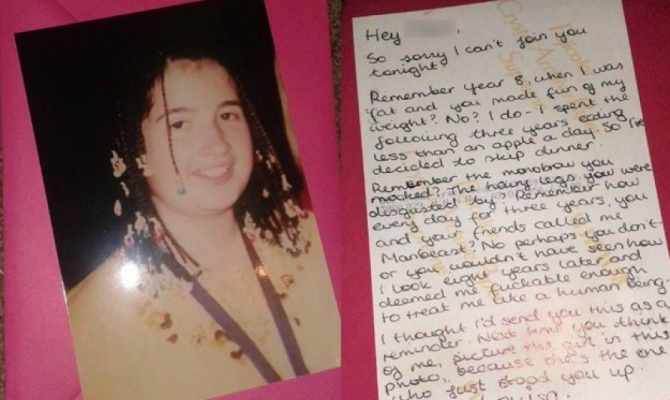 Hey
So sorry I can't join you
tonight.
Remember year 8, when I was
fat and you made fun of my
weight? No? I do - I spent the
following three years eating
less than an apple a day. So I've
decided to skip dinner.
Remember the monobrow you
mocked? The hairy legs you were
disgusted by? Remember how
every day for three years, you
and your friends called me
Manbeast? No perhaps you don't -
or you wouldn't have seen how
I look eight years later and
deemed me fuckable enough
to treat me like a human being.
I thought I'd send you this as a
reminder. Next time you think
of me, picture the girl in this
photo, because she's the one
who just stood you up.
Louisa